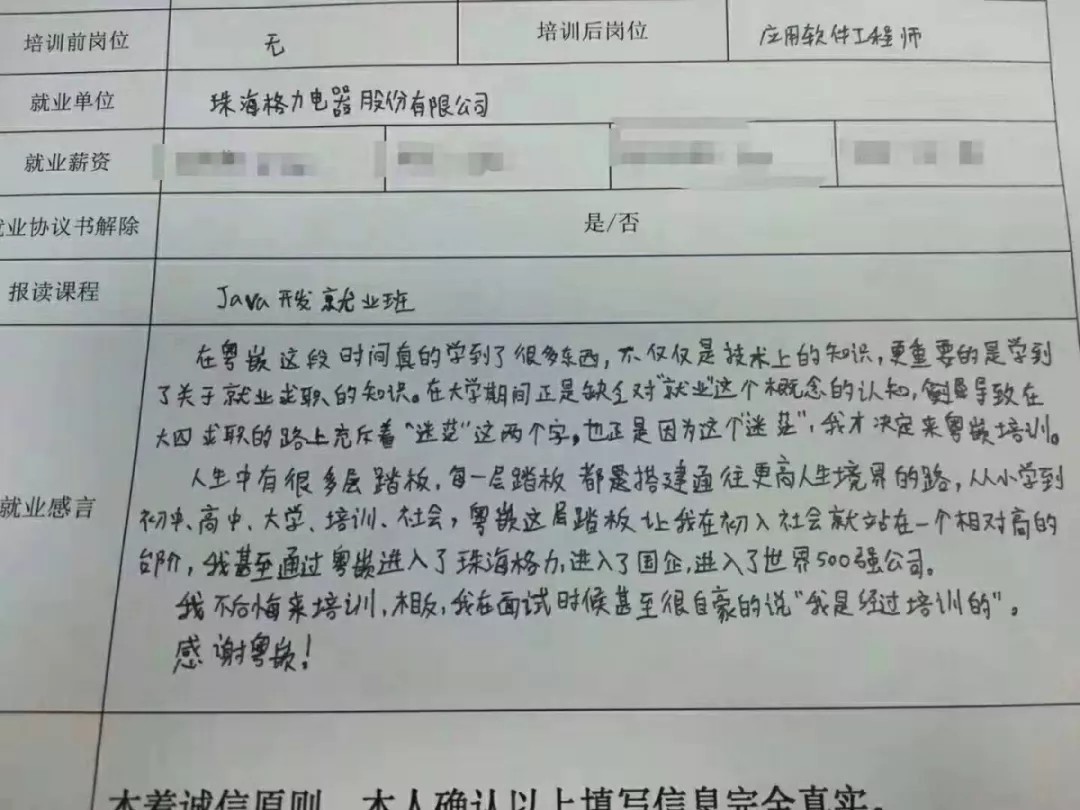 培训前岗位 无 培训后岗位 应用软件工程师
就业单位 珠海格力电器股份有限公司
就业薪资
业协议书解除 是/否
报读课程 Java开发就业班
就业感言
在粤嵌这段时间真的学到了很多东西,不仅仅是技术上的知识,更重要的是学到
了关于就业求职的知识。在大学期间正是缺乏对"就业"这个概念的认知,导致在
大四求职的路上充斥着"迷茫"这两个字,也正是因为这个"迷茫",我才决定来粤嵌培训。
人生中有很多层踏板,每一层踏板都是搭建通往更高人生境界的路,从小学到
初中、高中、大学、培训、社会,粤嵌这层踏板让我在初入社会就站在一个相对高的
台阶,我甚至通过粤嵌进入了珠海格力,进入了国企,进入了世界500强公司。
我不后悔来培训,相反,我在面试时候甚至很自豪的说"我是经过培训的"。
感谢粤嵌!
本着诚信原则 本人确认以上填写信息完全真实。